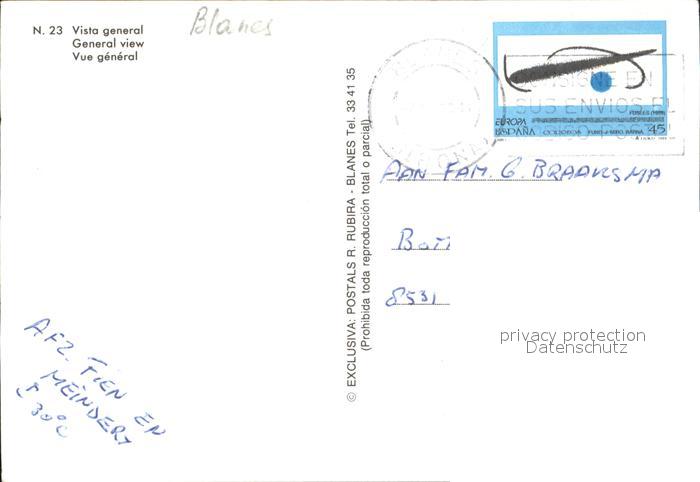 N. 23 Vista general
General view
Vue général
Blanes
© EXCLUSIVA: POSTALS R. RUBIRA - BLANES Tel. 33 41 35
(Prohibida toda reproducción total o parcial)
CONSIGNE EN
SUS ENVIOS EL
EUROPA
ESPAÑA CORREOS 45
AAN FAM. G. BRAAKSMA
8531
privacy protection
Datenschutz
AFZ. TIEN EN
MEINDERT
± 30°C